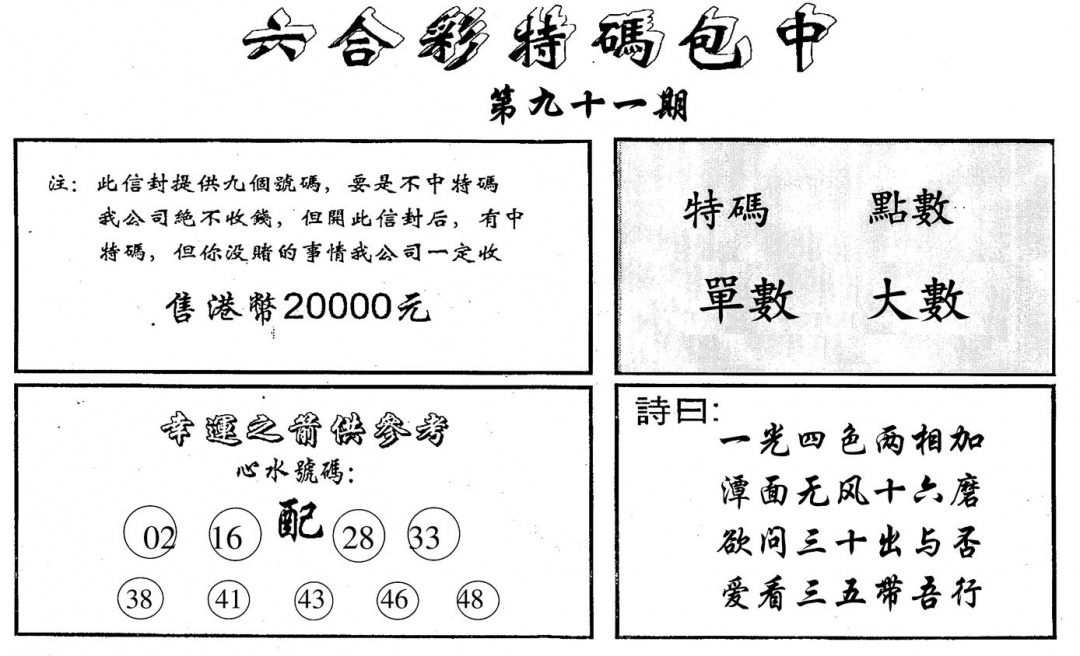 六合彩特碼包中
第九十一期
注：此信封提供九個號碼，要是不中特碼
我公司絶不收錢，但開此信封后，有中
特碼，但你没賭的事情我公司一定收
售港幣20000元
特碼 點數
單數 大數
幸運之箭供參考
心水號碼：
配
02 16 28 33
38 41 43 46 48
詩曰：
一光四色两相加
潭面无风十六磨
欲问三十出与否
爱看三五带吾行